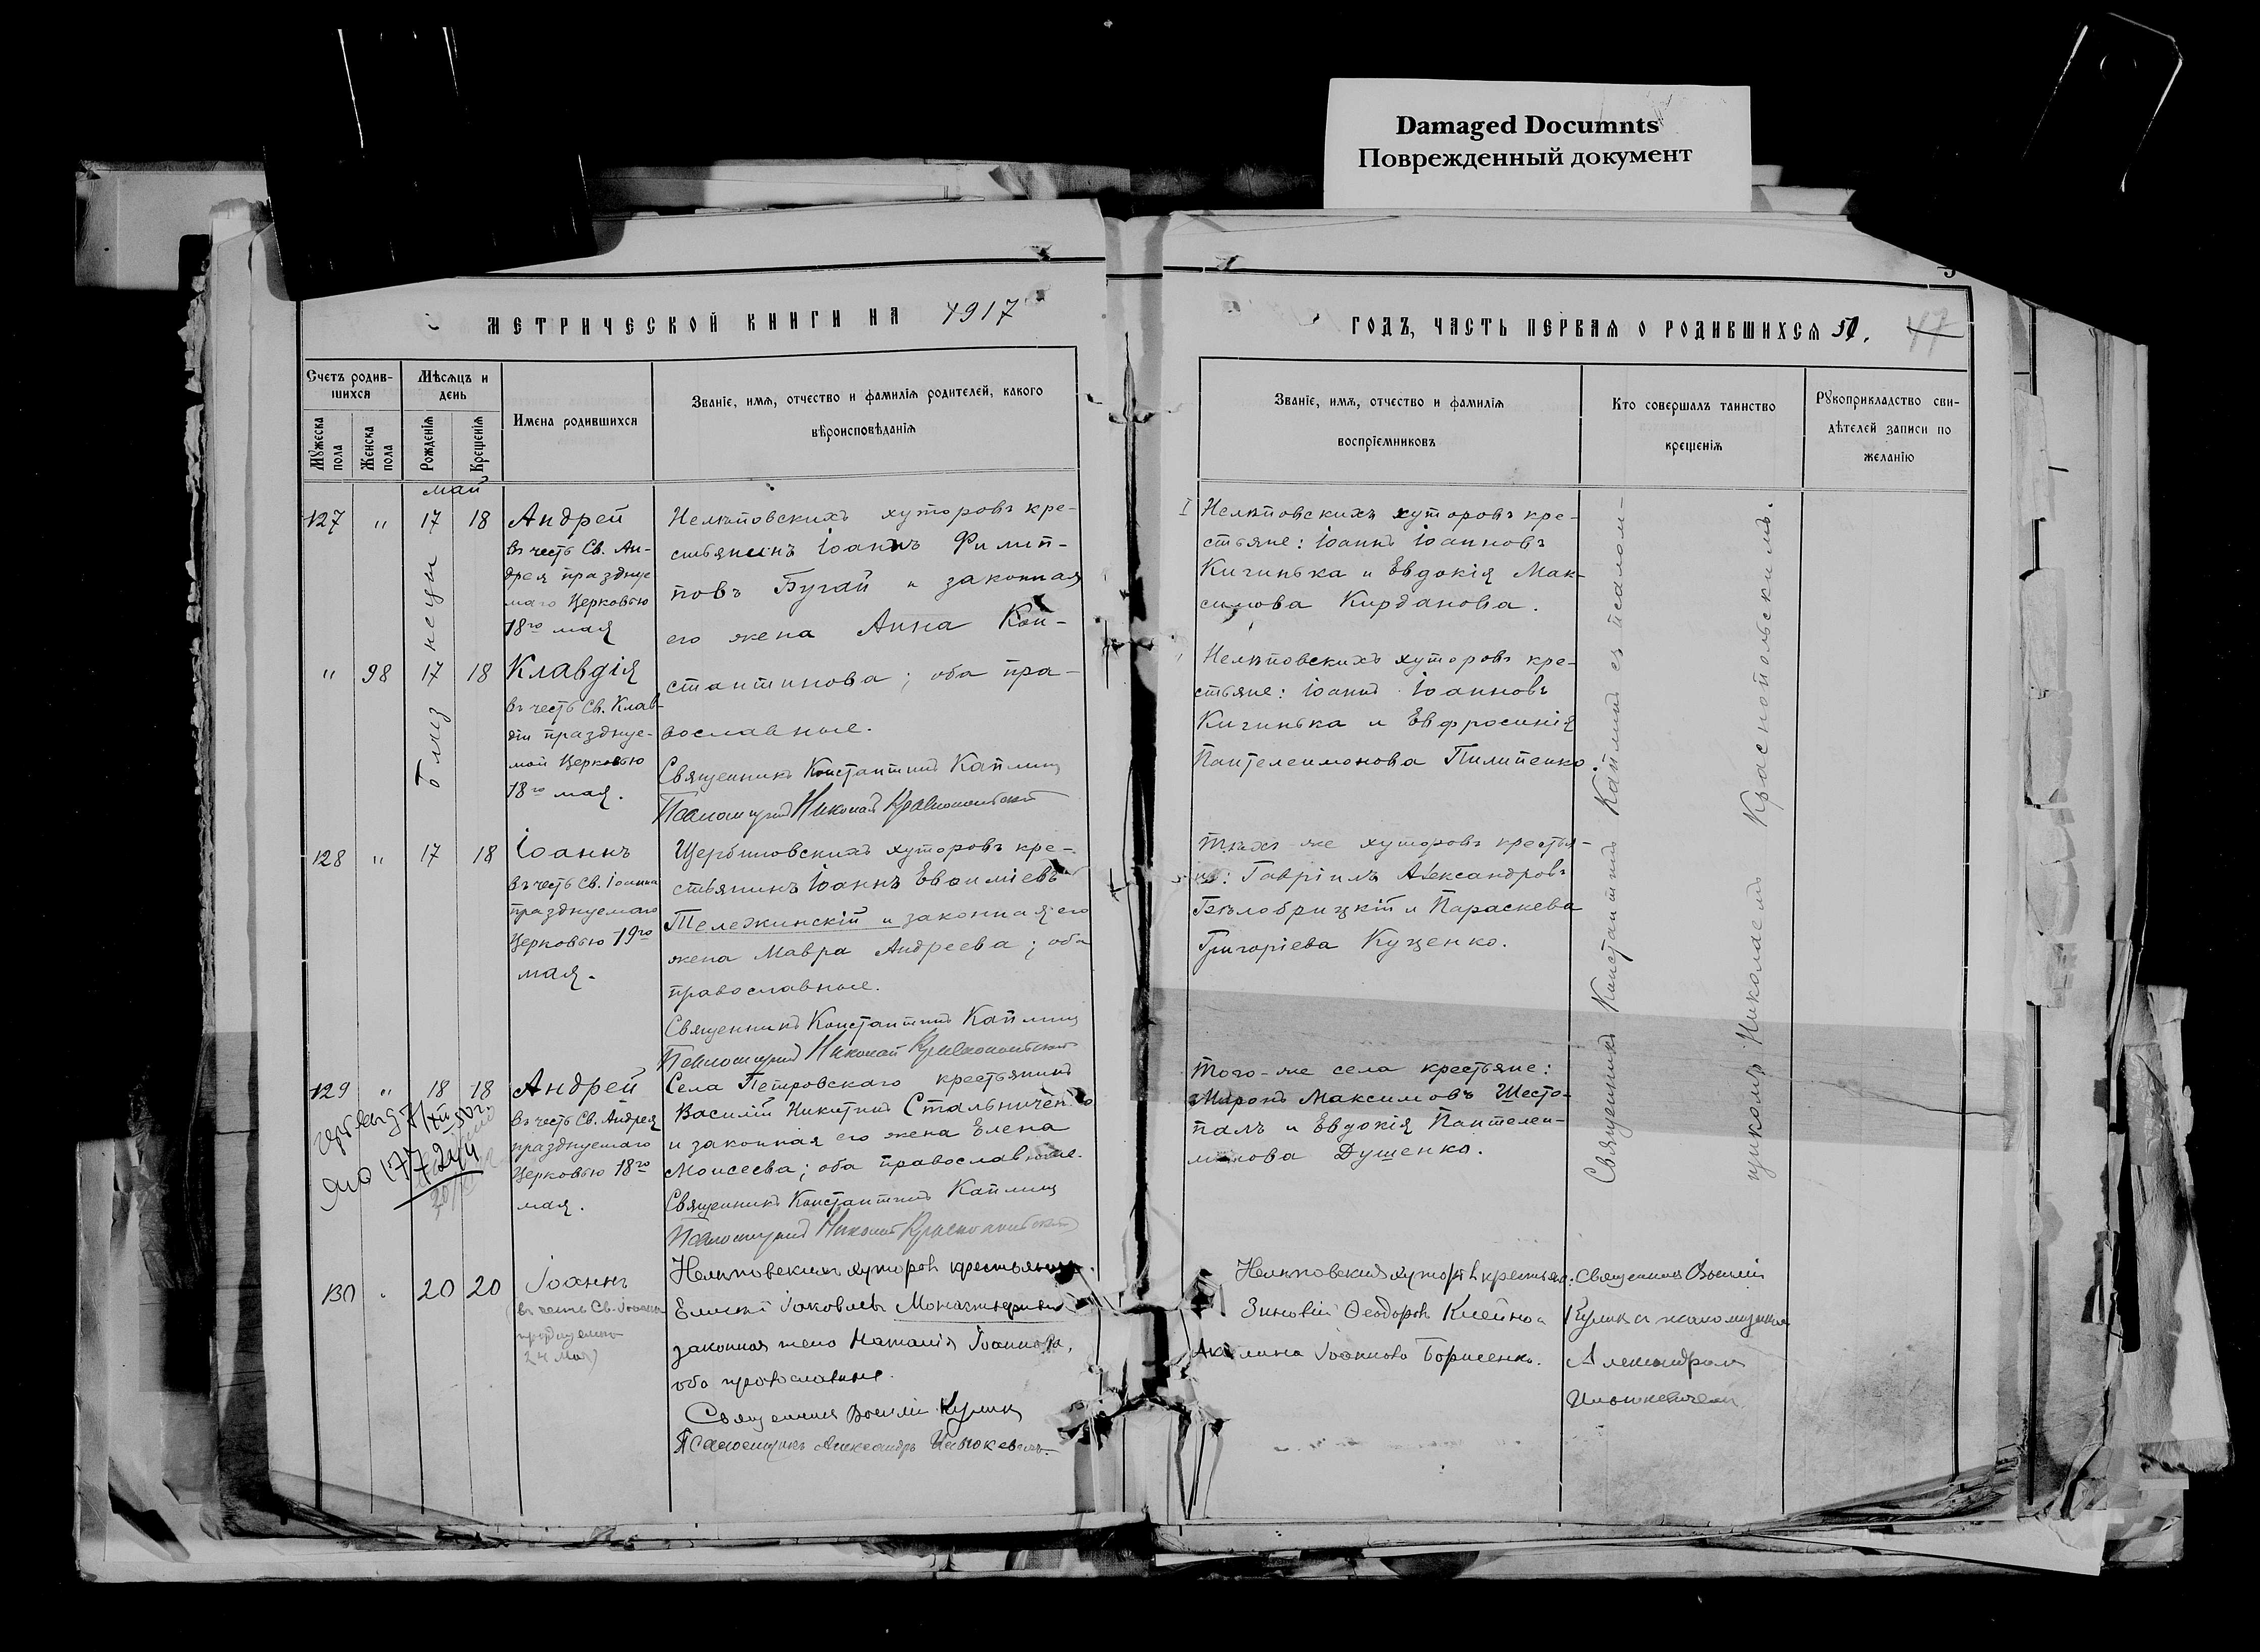 Damaged Documnts
Поврежденный документ
МЕТРИЧЕСКОЙ КНИГИ НА 1917
Счетъ родив-
шихся
Мѣсяцъ и
день
Имена родившихся
Званіе, имя, отчество и фамилія родителей, какого
вѣроисповѣданія
Мужеска
пола
Женска
пола
Рожденія
Крещенія
май
близнецы
127 " 17 18 Андрей
въ честь Св. Ан-
дрея праздnуе
маго Церковью
18го мая
Нелѣповскихъ хуторовъ кре-
стьянинъ Іоаннъ Филип-
повъ Бугай и законная
его жена Анна Кон-
" 98 17 18 Клавдія
въ честь Св. Клав-
діи празднуе-
мой Церковью
18го мая.
стантинова; оба пра-
вославные.
Священникъ Константинъ Каплинъ
Псаломщикъ Николай Краснопольскій
128 " 17 18 Іоаннъ
въ честь Св. Іоанна
празднуемаго
Церковью 19го
мая.
Щербиновскихъ хуторовъ кре-
стьянинъ Іоаннъ Евѳиміевъ
Тележинскій и законная его
жена Мавра Андреева; оба
православные.
Священникъ Константинъ Каплинъ
Псаломщикъ Николай Краснопольскій
129 " 18 18 Андрей
въ честь Св. Андрея
празднуемаго
Церковью 18го
мая.
Села Петровскаго крестьянинъ
Василій Никитинъ Стальниченко
и законная его жена Елена
Моисеева; оба православные.
Священникъ Константинъ Каплинъ
Псаломщикъ Николай Краснопольскій
130 " 20 20 Іоаннъ
(въ честь Св. Іоанна
празднуемаго
24 мая)
Нелѣповскихъ хуторовъ крестьянинъ
Іаковлевъ
законная жена Наталія Іоаннова,
оба православные.
Священникъ Василій Куликъ
Псаломщикъ Александръ
ГОДЪ, ЧАСТЬ ПЕРВАЯ О РОДИВШИХСЯ 51.
47
Званіе, имя, отчество и фамилія
воспріемниковъ
Кто совершалъ таинство
крещенія
Рукоприкладство сви-
дѣтелей записи по
желанію
Нелѣповскихъ хуторовъ кре-
стьяне: Іоаннъ Іоанновъ
Кичинька и Евдокія Мак-
симова Кирданова.
Нелѣповскихъ хуторовъ кре-
стьяне: Іоаннъ Іоанновъ
Кичинька и Евфросинія
Пантелеимонова Пилипенко.
Тѣхъ же хуторовъ крестья-
не: Гавріилъ Александровъ
Бѣлобрицкій и Параскева
Григоріева Куценко.
Того-же села крестьяне:
Миронъ Максимовъ Шесто-
палъ и Евдокія Пантелеи-
монова Душенко.
Священникъ Константинъ Каплинъ съ псалом-
щикомъ Николаемъ Краснопольскимъ.
Нелѣповскихъ хуторовъ крестьян.
Зиновій Ѳеодоровъ
Акилина Іоаннова Борисенко.
Священникъ Василій
Куликъ съ псаломщикомъ
Александромъ